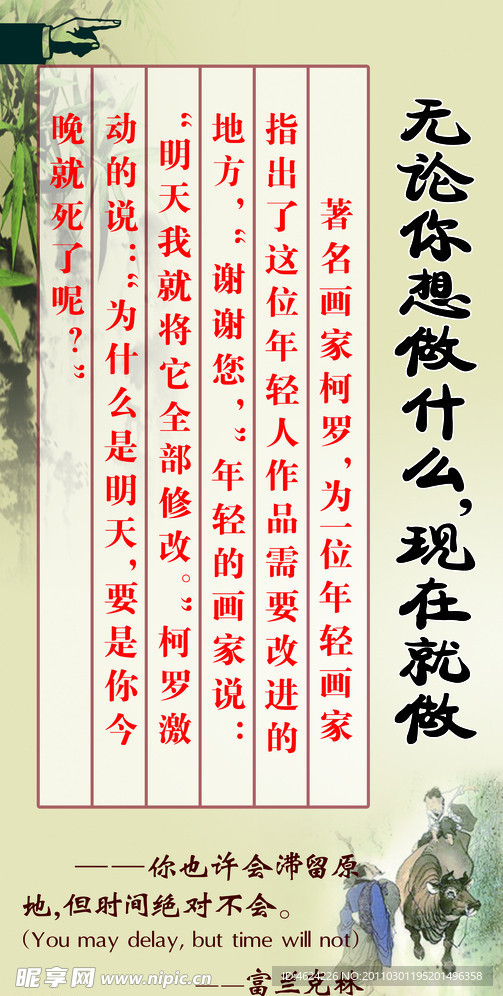 无论你想做什么,现在就做
著名画家柯罗,为一位年轻画家
指出了这位年轻人作品需要改进的
地方,“谢谢您,”年轻的画家说:
“明天我就将它全部修改。”柯罗激
动的说:“为什么是明天,要是你今
晚就死了呢?”
——你也许会滞留原
地,但时间绝对不会。
(You may delay, but time will not)
——富兰克林
昵享网 www.nipic.cn
ID:4624226 NO:20110301195201496358